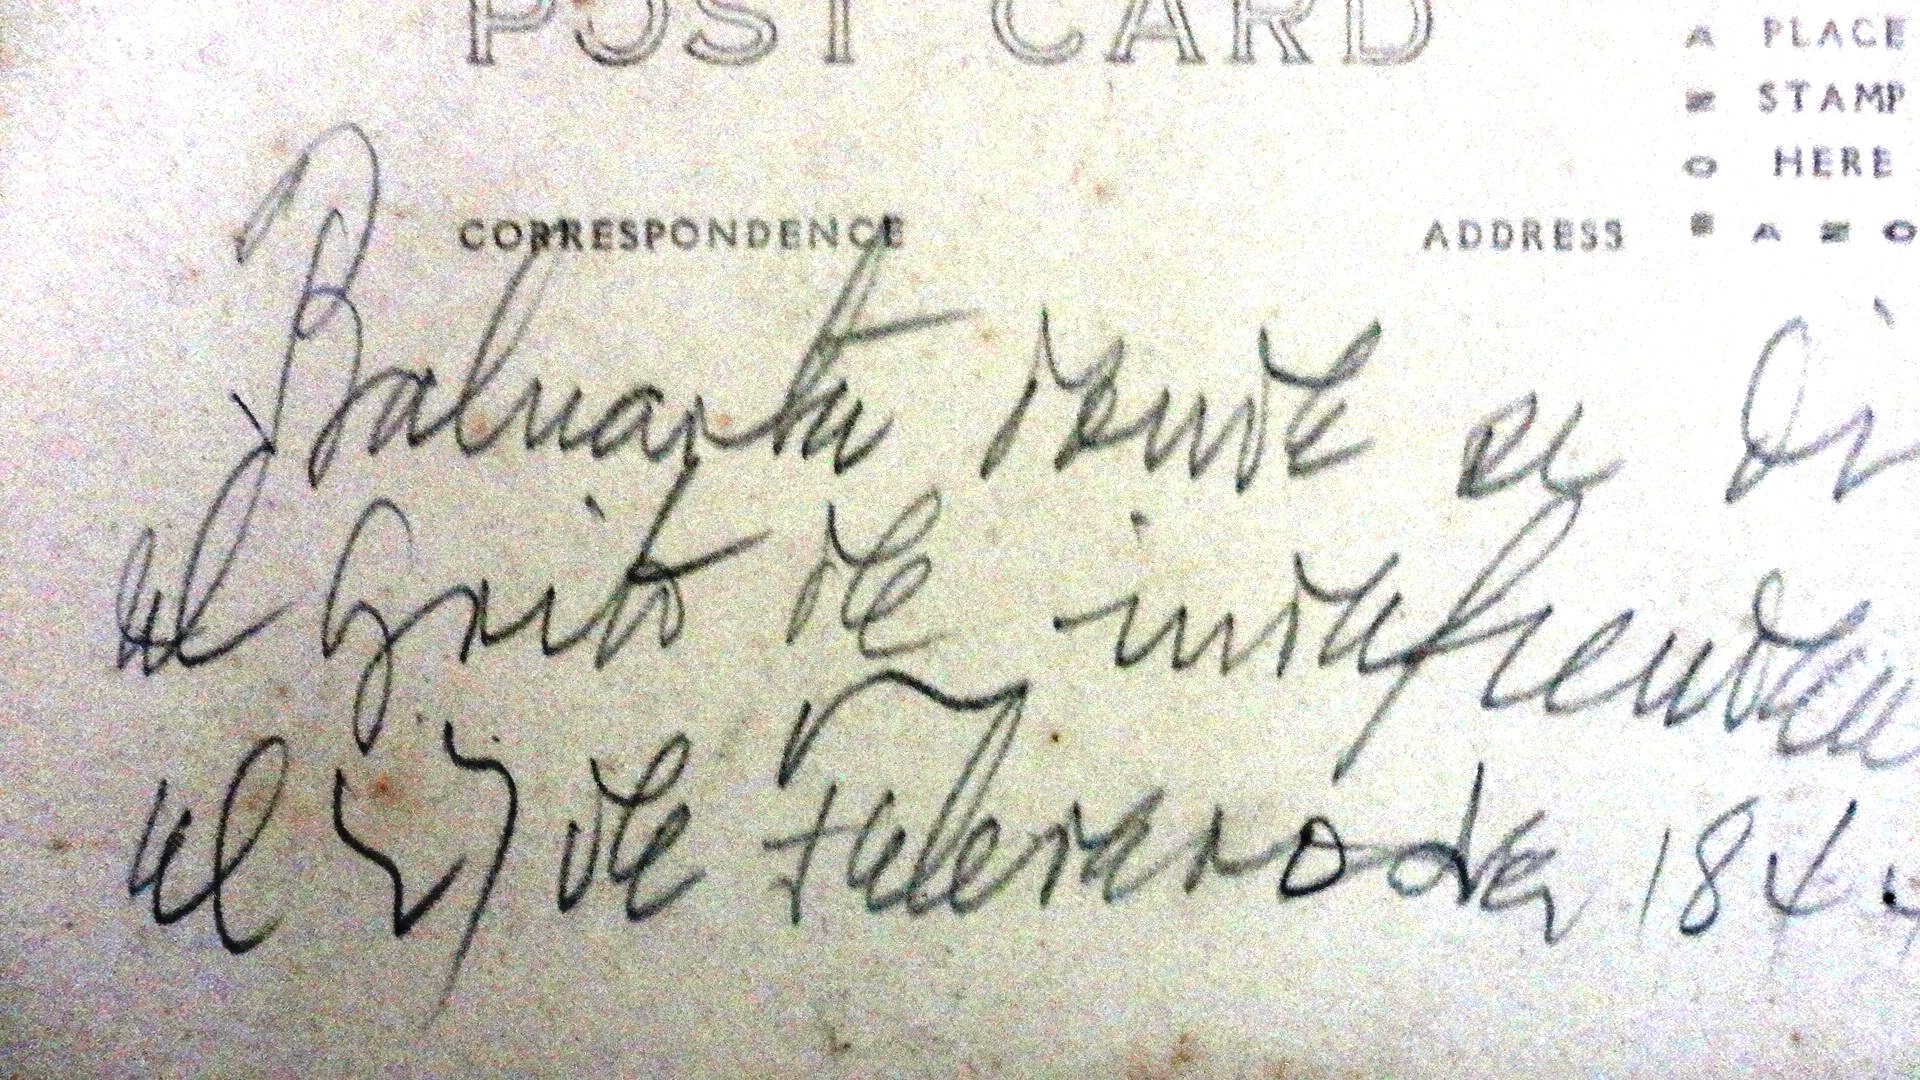 POST CARD
PLACE
STAMP
HERE
CORRESPONDENCE ADDRESS
Baluarte donde se di
el Grito de independen
el 27 de Febrero de 1844